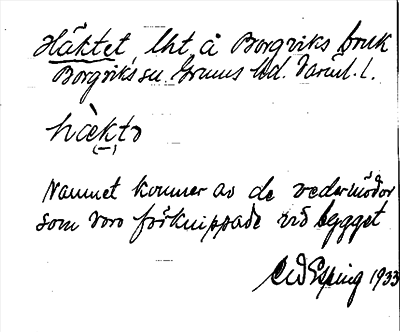 Häktet, lht. å Borgviks bruk
Borgviks sn. Grums hd. Värml. l.
hàekto
Namnet kommer av de vedermödor
som voro förknippade vid bygget
Esping 1933